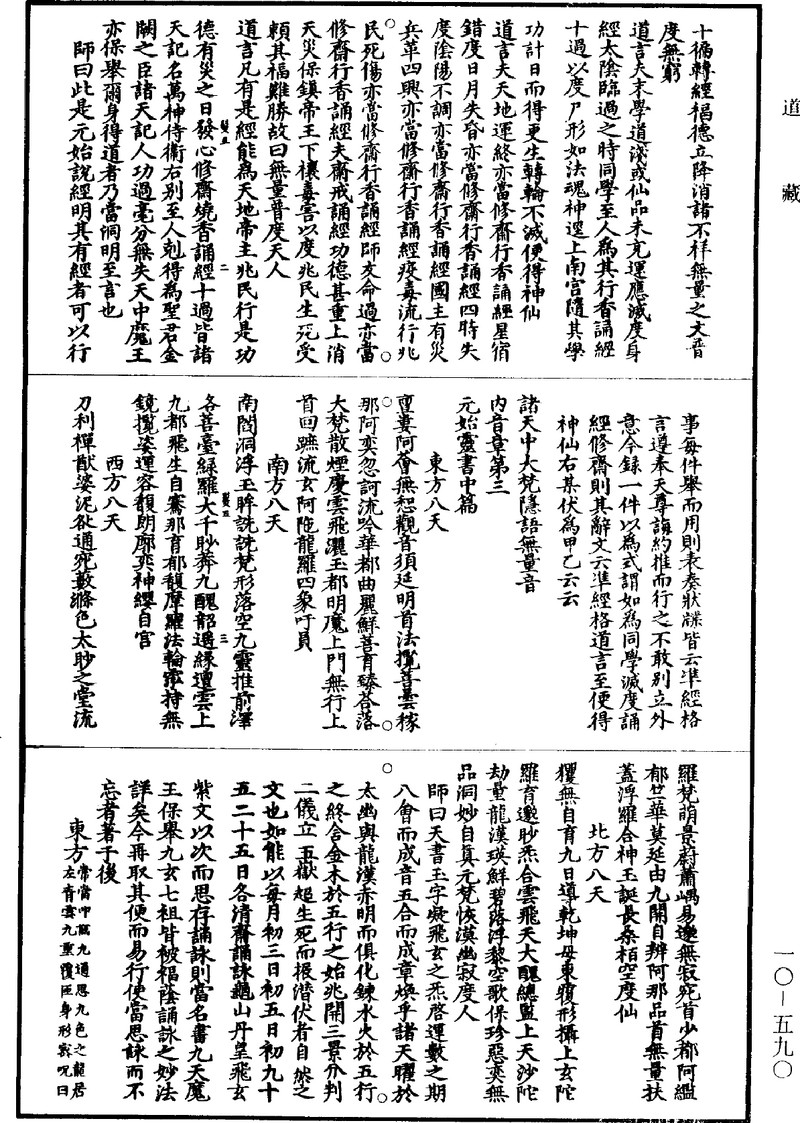 道藏
十徧轉經福德立降消諸不祥無量之文普
度無窮
道言夫末學道淺或仙品未充運應滅度身
經太陰臨過之時同學至人為其行香誦經
十過以度尸形如法魂神逕上南宮隨其學
功計日而得更生轉輪不滅便得神仙
道言夫天地運終亦當修齋行香誦經星宿
錯度日月失昏亦當修齋行香誦經四時失
度陰陽不調亦當修齋行香誦經國主有災
兵革四興亦當修齋行香誦經疫毒流行兆
民死傷亦當修齋行香誦經師友命過亦當
修齋行香誦經夫齋戒誦經功德甚重上消
天災保鎮帝王下禳毒害以度兆民生死受
賴其福難勝故曰無量普度天人
道言凡有是經能為天地帝主兆民行是功
德有災之日發心修齋燒香誦經十過皆諸
天記名萬神侍衛右別至人剋得為聖君金
闕之臣諸天記人功過毫分無失天中魔王
亦保舉爾身得道者乃當洞明至言也
師曰此是元始說經明其有經者可以行
事每件舉而用則表奏狀牒皆云準經格
言遵奉天尊誨約推而行之不敢別立外
意今錄一件以為式謂如為同學滅度誦
經修齋則其辭文云準經格道言至便得
神仙右某伏為甲乙云云
諸天中大梵隱語無量音
內音章第三
元始靈書中篇
東方八天
亶婁阿薈無惒觀音須延明首法攬菩曇稼
那阿奕忽訶流吟華都曲麗鮮菩育臻荅落
大梵散煙慶雲飛灑玉都明魔上門無行上
首回蹠流玄阿陁龍羅四象吁員
南方八天
南閻洞浮玉眸詵詵梵形落空九靈推前澤
洛菩臺綠羅大千眇莽九醜韶遏緣邅雲上
九都飛生自騫那育郁馥摩羅法輪霐持無
鏡攬姿運容馥朗廓奕神纓自宮
西方八天
刀利禪猷婆泥咎通宛藪滌色太眇之堂流
羅梵萌景蔚蕭嵎易邈無寂宛首少都阿繿
郁竺華莫延由九開自辯阿那品首無量扶
蓋浮羅合神玉誕長桑栢空度仙
北方八天
玃無自育九日導乾坤母東覆形攝上玄陀
羅育邈眇炁合雲飛天大醜總監上天沙陀
劫量龍漢瑛鮮碧落浮黎空歌保珍惡奕無
品洞妙自真元梵恢漠幽寂度人
師曰天書玉字凝飛玄之炁啓運數之期
八會而成音五合而成章煥乎諸天曜於
太幽與龍漢赤明而俱化鍊水火於五行
之終合金木於五行之始兆開三景分判
二儀立五嶽超生死而根潛伏者自然之
文也如能以每月初三日初五日初九十
五二十五日各清齋誦詠龜山丹皇飛玄
紫文以次而思存誦詠則當名書九天魔
王保舉九玄七祖皆被福蔭誦詠之妙法
詳矣今再取其便而易行使當思詠而不
忘者著于後
東方常當中臨九通思九色之龍居
左青雲九重覆匝身形叅呪曰
一〇-五九〇